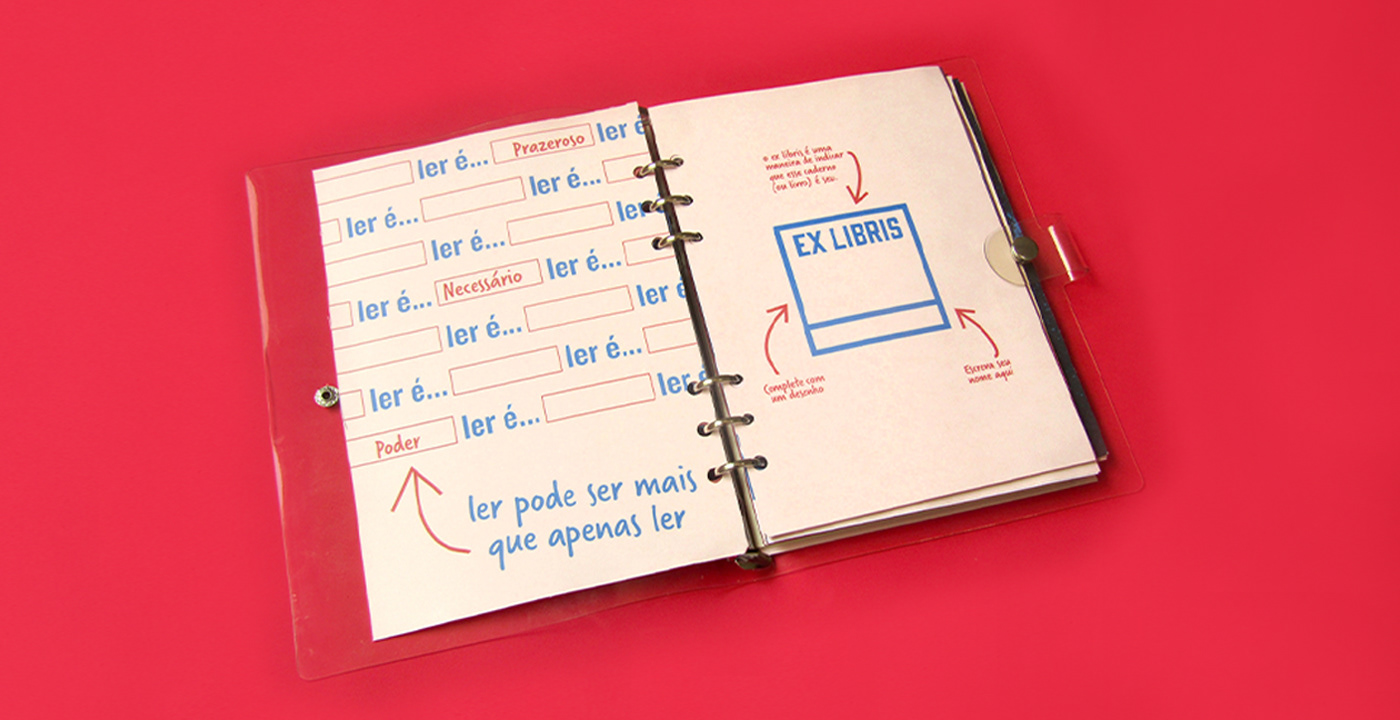 ler é... Prazeroso ler é
ler é... ler é...
ler é... ler
ler é... Necessário ler é...
ler é... ler é
ler é... ler é...
Poder ler é... ler é
ler pode ser mais
que apenas ler
o ex libris é uma
maneira de indicar
que esse caderno
(ou livro) é seu.
EX LIBRIS
Complete com
um desenho
Escreva seu
nome aqui